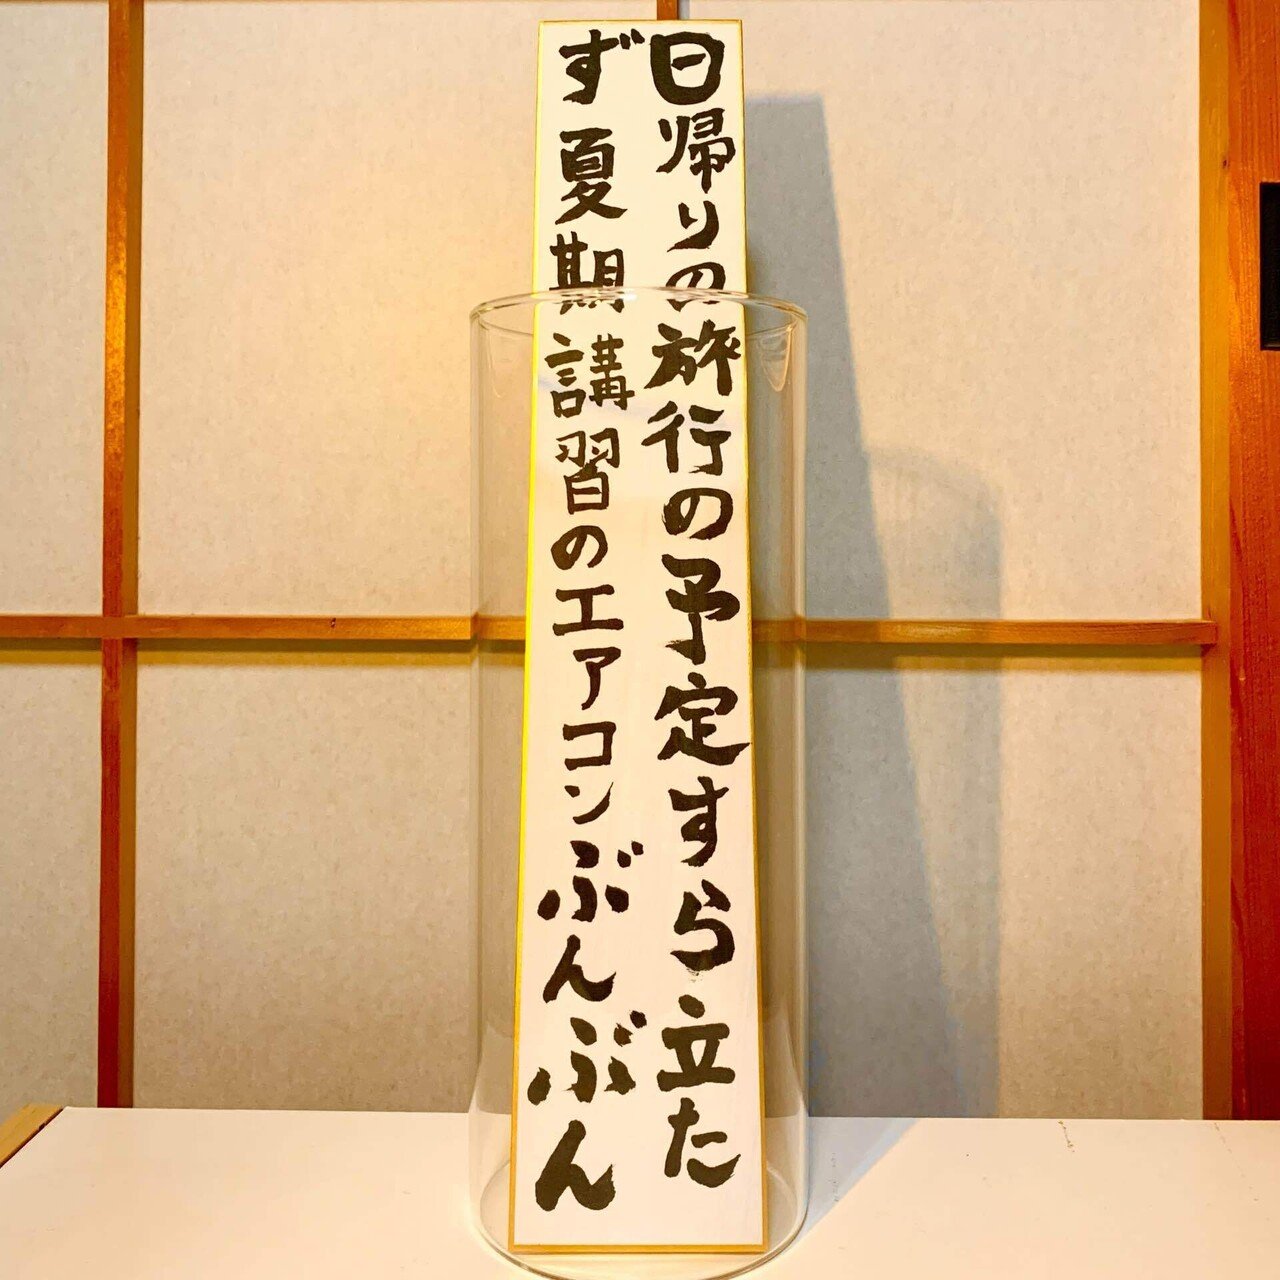 日帰りの旅行の予定すら立た
ず夏期講習のエアコンぶんぶん